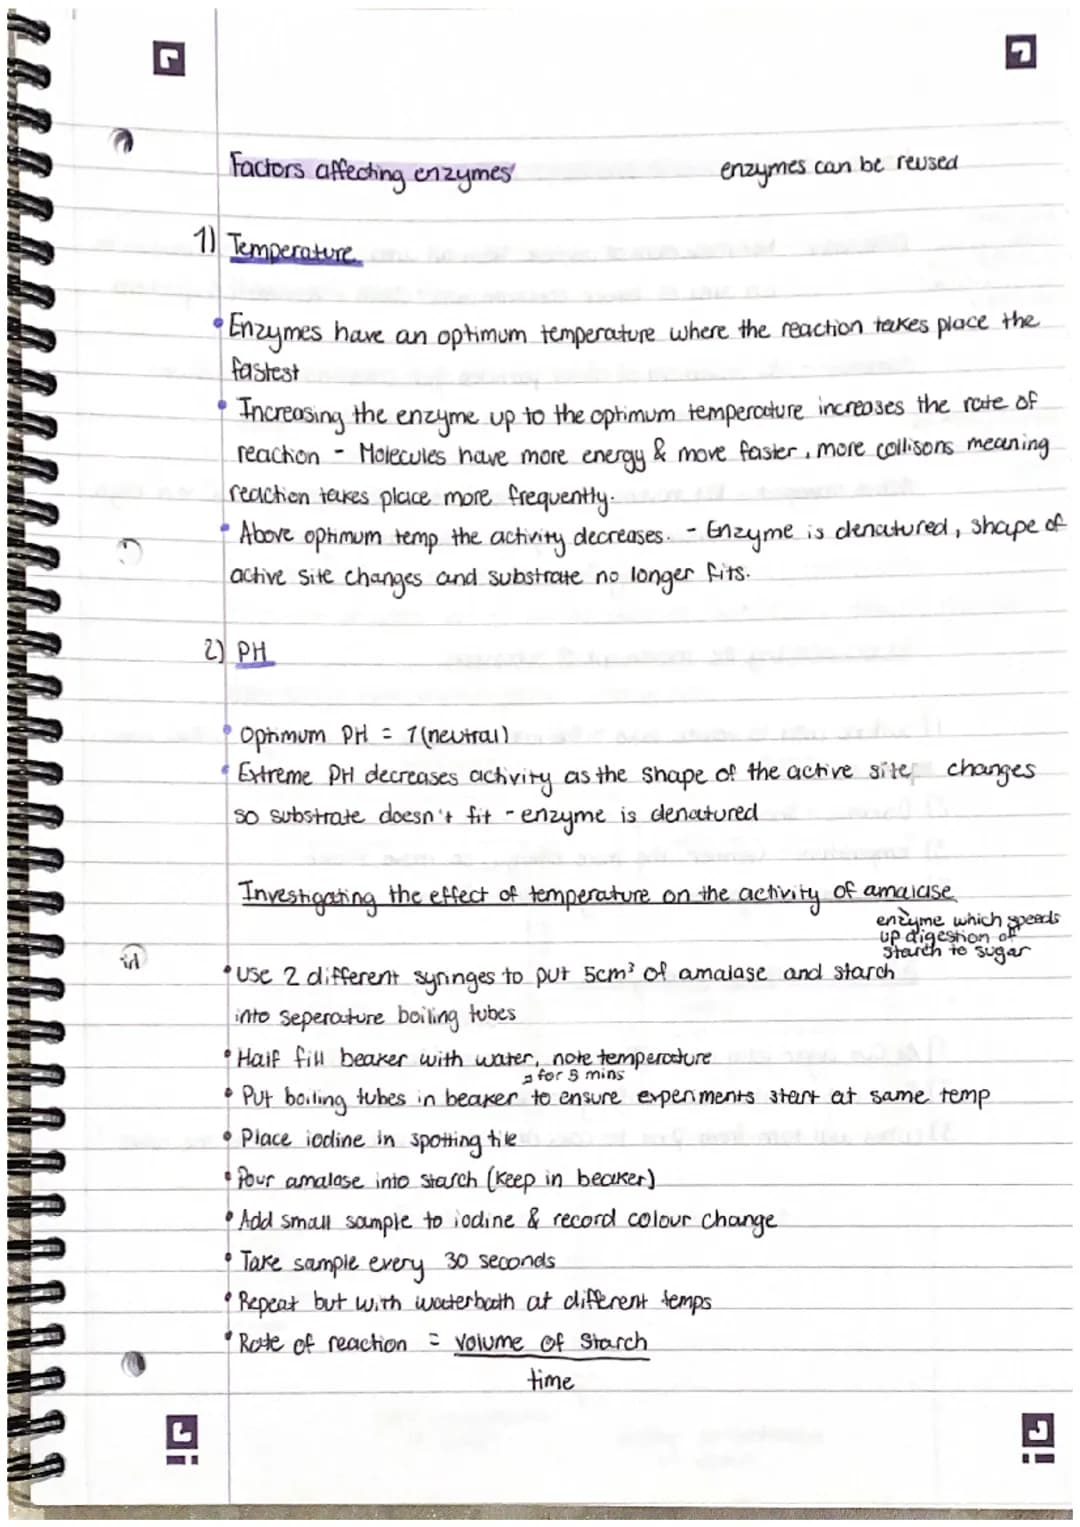 Factors affecting enzymes
enzymes can be reused
1) Temperature
• Enzymes have an optimum temperature where the reaction takes place the
fastest
• Increasing the enzyme up to the optimum temperature increases the rate of
reaction - Molecules have more energy & move faster, more collisons meaning
reaction takes place more frequently.
• Above optimum temp the activity decreases. - Enzyme is denatured, shape of
active site changes and substrate no longer fits.
2) PH
• Optimum PH = 7 (neutral)
• Extreme PH decreases activity as the shape of the active site changes
so substrate doesn't fit - enzyme is denatured
Investigating the effect of temperature on the activity of amalase
enzyme which speeds
up digestion of
starch to sugar
• Use 2 different syringes to put 5cm³ of amalase and starch
into seperature boiling tubes
• Half fill beaker with water, note temperature
for 5 mins
• Put boiling tubes in beaker to ensure experiments start at same temp
• Place iodine in spotting tile
• Pour amalase into starch (keep in beaker)
• Add small sample to iodine & record colour change
• Take sample every 30 seconds
• Repeat but with waterbath at different temps
• Rate of reaction = volume of starch
time